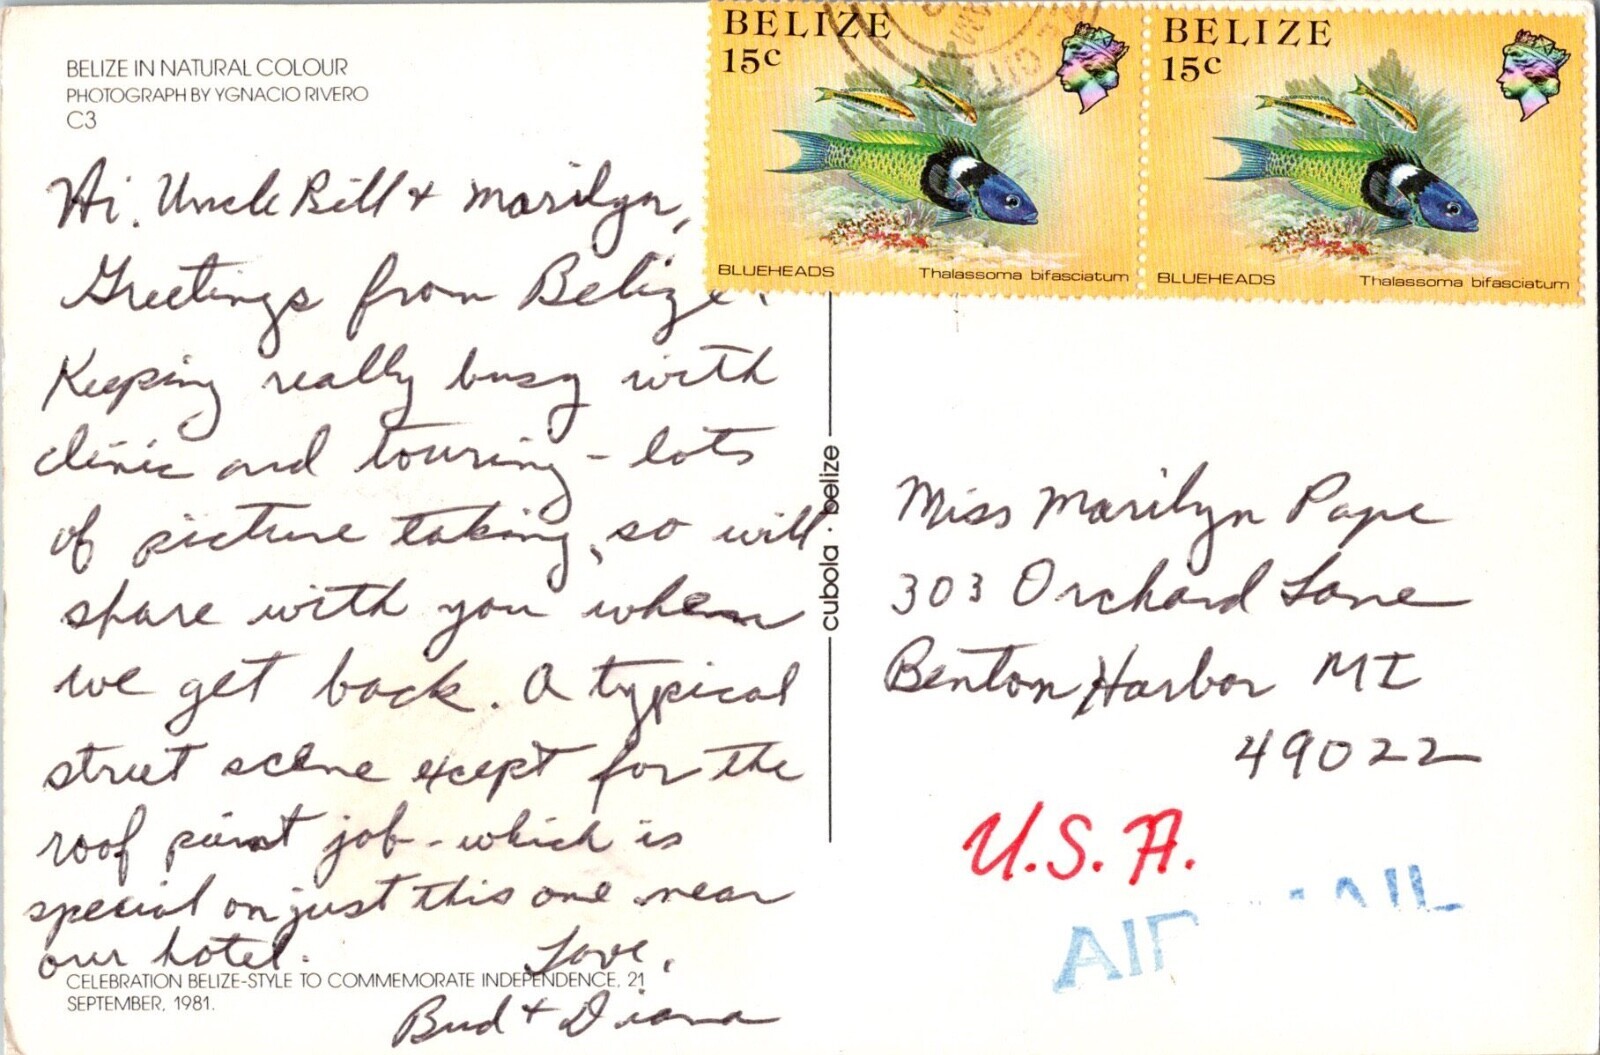 BELIZE IN NATURAL COLOUR
PHOTOGRAPH BY YGNACIO RIVERO
C3
Hi, Uncle Bill + Marilyn,
Greetings from Belize.
Keeping really busy with
clinic and touring - lots
of picture taking, so will
share with you when
we get back. A typical
street scene except for the
roof paint job - which is
special on just this one near
our hotel.
Love,
Bud + Diana
CELEBRATION BELIZE-STYLE TO COMMEMORATE INDEPENDENCE, 21
SEPTEMBER, 1981.
cubola · belize
BELIZE
15c
BLUEHEADS Thalassoma bifasciatum
BELIZE
15c
BLUEHEADS Thalassoma bifasciatum
Miss Marilyn Pape
303 Orchard Lane
Benton Harbor MI
49022
U.S.A.
AIR MAIL